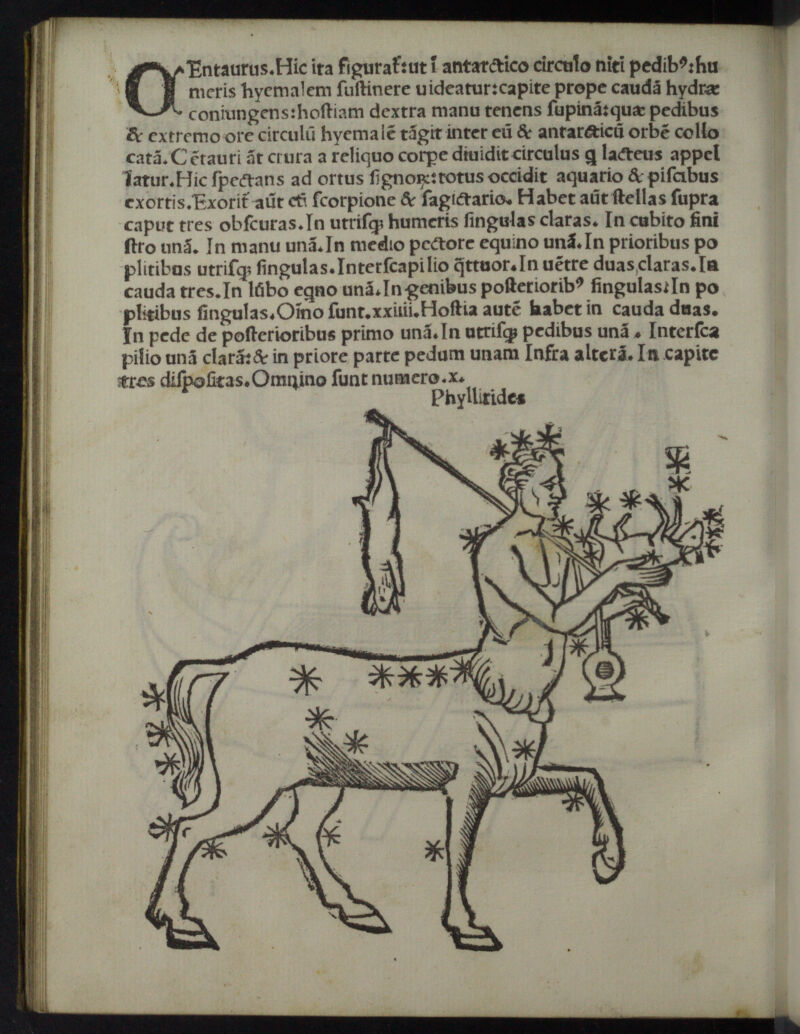 CEntaurus.Hic ita figurat̃:ut ĩ antarctico circulo niti pedibꝰ:hu
meris hyemalem ſuſtinere uideatur:capite prope caudã hydræ
coniungens:hoſtiam dextra manu tenens ſupinã:quæ pedibus
& extremo ore circulũ hyemalẽ tãgit inter eũ & antarcticũ orbẽ collo
catã.Cẽtauri ãt crura a reliquo corpe diuidit circulus q lacteus appel
latur.Hic ſpectans ad ortus ſignoꝝ:totus occidit aquario & piſcibus
exortis.Exorit̃ aũt cũ ſcorpione & ſagictario. Habet aũt ſtellas ſupra
caput tres obſcuras.In utriſqꝫ humeris ſingulas claras. In cubito ſini
ſtro unã. In manu unã.In medio pectore equino unã.In prioribus po
plitibus utriſqꝫ ſingulas.Interſcapilio q̃ttuor.In uẽtre duas claras.In
cauda tres.In lũbo eqno unã.In genibus poſterioribꝰ ſingulas:In po
plitibus ſingulas.Oĩno ſunt.xxiiii.Hoſtia autẽ habet in cauda duas.
In pede de poſterioribus primo unã.In utriſqꝫ pedibus unã . Interſca
pilio unã clarã:& in priore parte pedum unam Infra alterã. In capite
tres diſpoſitas.Omnino ſunt numero.x.
Phyllirides